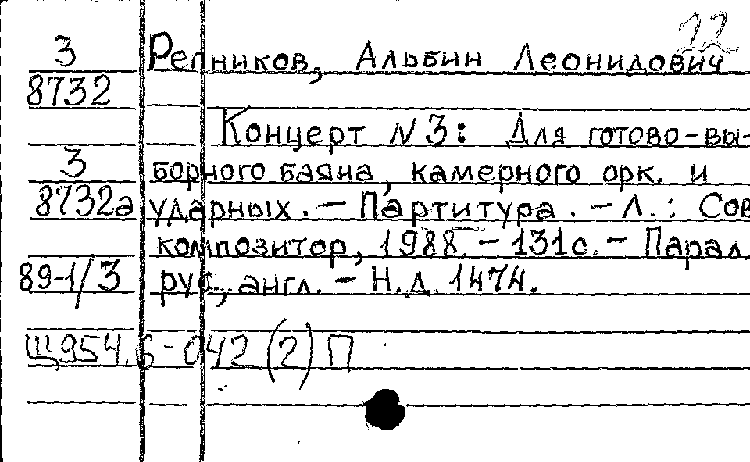 22
3 Репников, Альбин Леонидович
8732
Концерт N 3: Для готово-вы-
3 борного баяна, камерного орк. и
8732а ударных. – Партитура. – Л.: Сов
композитор, 1988. – 131с. – Парал.
89-1/3 рус., англ. – Н.д. 1474.
Щ954.6-042 (2) П